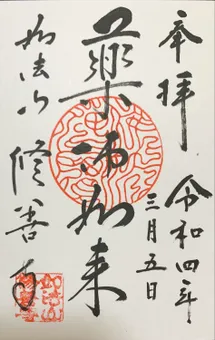 奉拝
令和四年
三月五日
薬师如来
如法山
修善寺